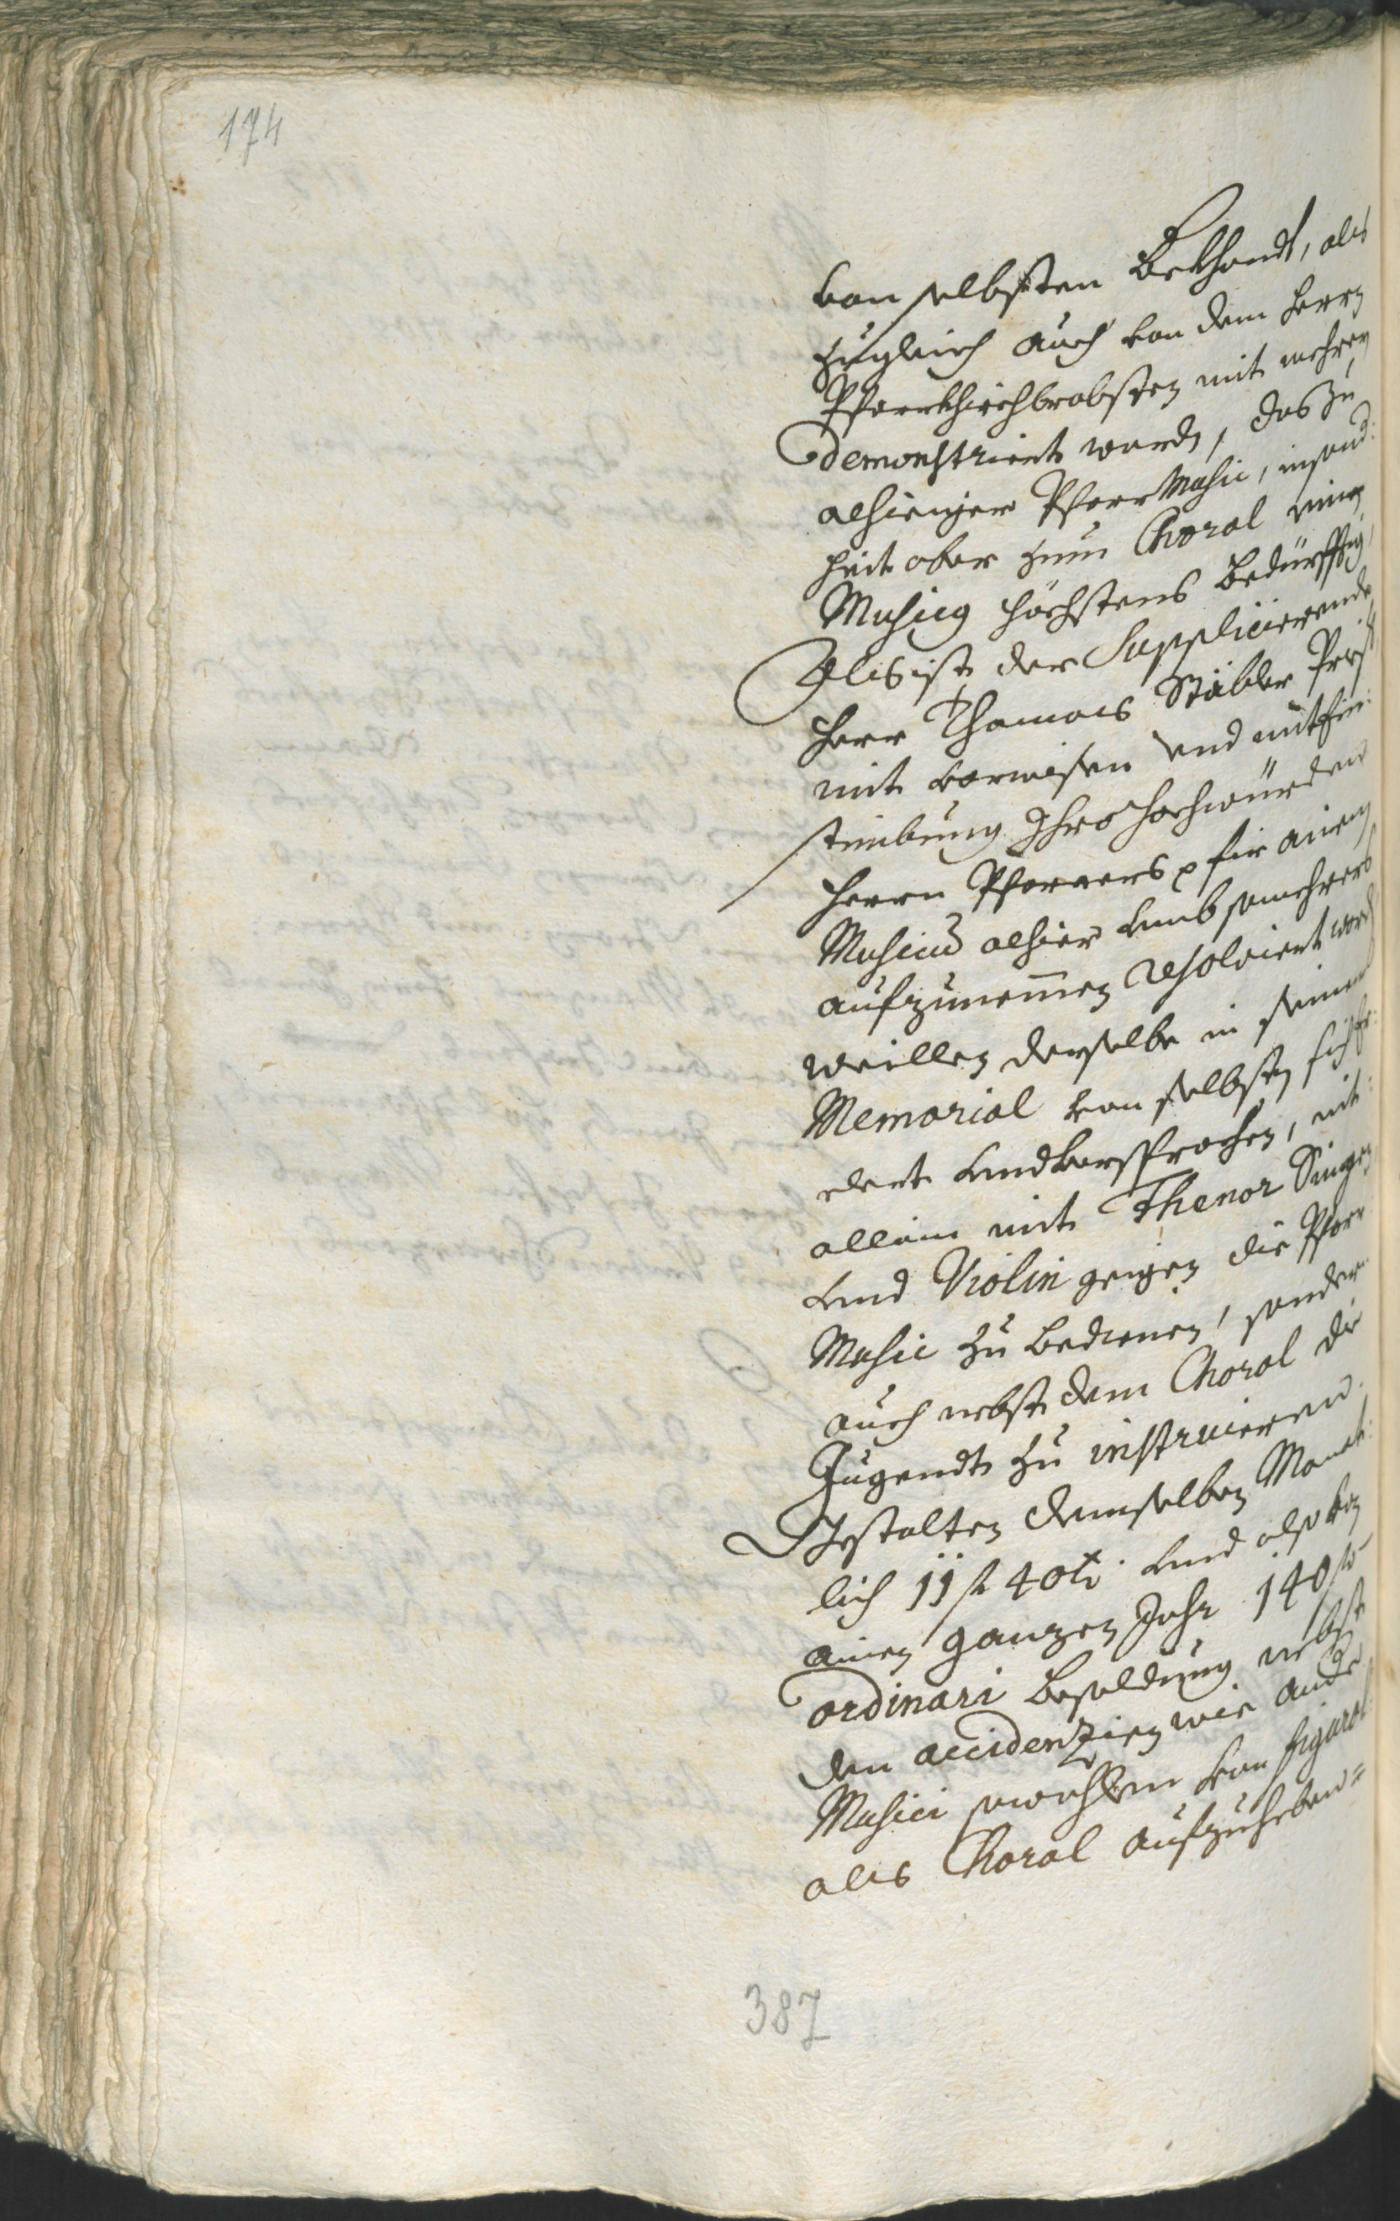 174
von selbsten Bekhandt, als
zugleich auch von dem Herrn
Pfarrkhirchbrobsten mit mehren
demonstriert wordn, das zu
alhieiger Pfarr Music, insond:
heit aber zum Choral eines
Musicq höchstens bedürfftig,
Als ist der Supplicierende
Herr Thomas Stäbler
mit vorwissen Und mitEin
stimbung Ihro Hochwürden
Herrn Pfarrers p für ainen
Musicum alhier Umb somehrers
aufzunemmen resolviert word
weillen derselbe in seinem
Memorial von selbsten sich
Und versprochen, nit
allein mit Thenor Singen
Und Violin geigen die Pfarr
Music zu bedienen, sondern
auch nebst dem Choral die
Jugendt zu instruieren.
Gestalten demselben Monat:
lich 11 fl 40 kr Und also ain
ainen ganzen Jahr 140 fl
ordinari besoldtung nebst
den accidenzien wie ande
Musici sowohl von figural
als Choral aufzuheben=
387